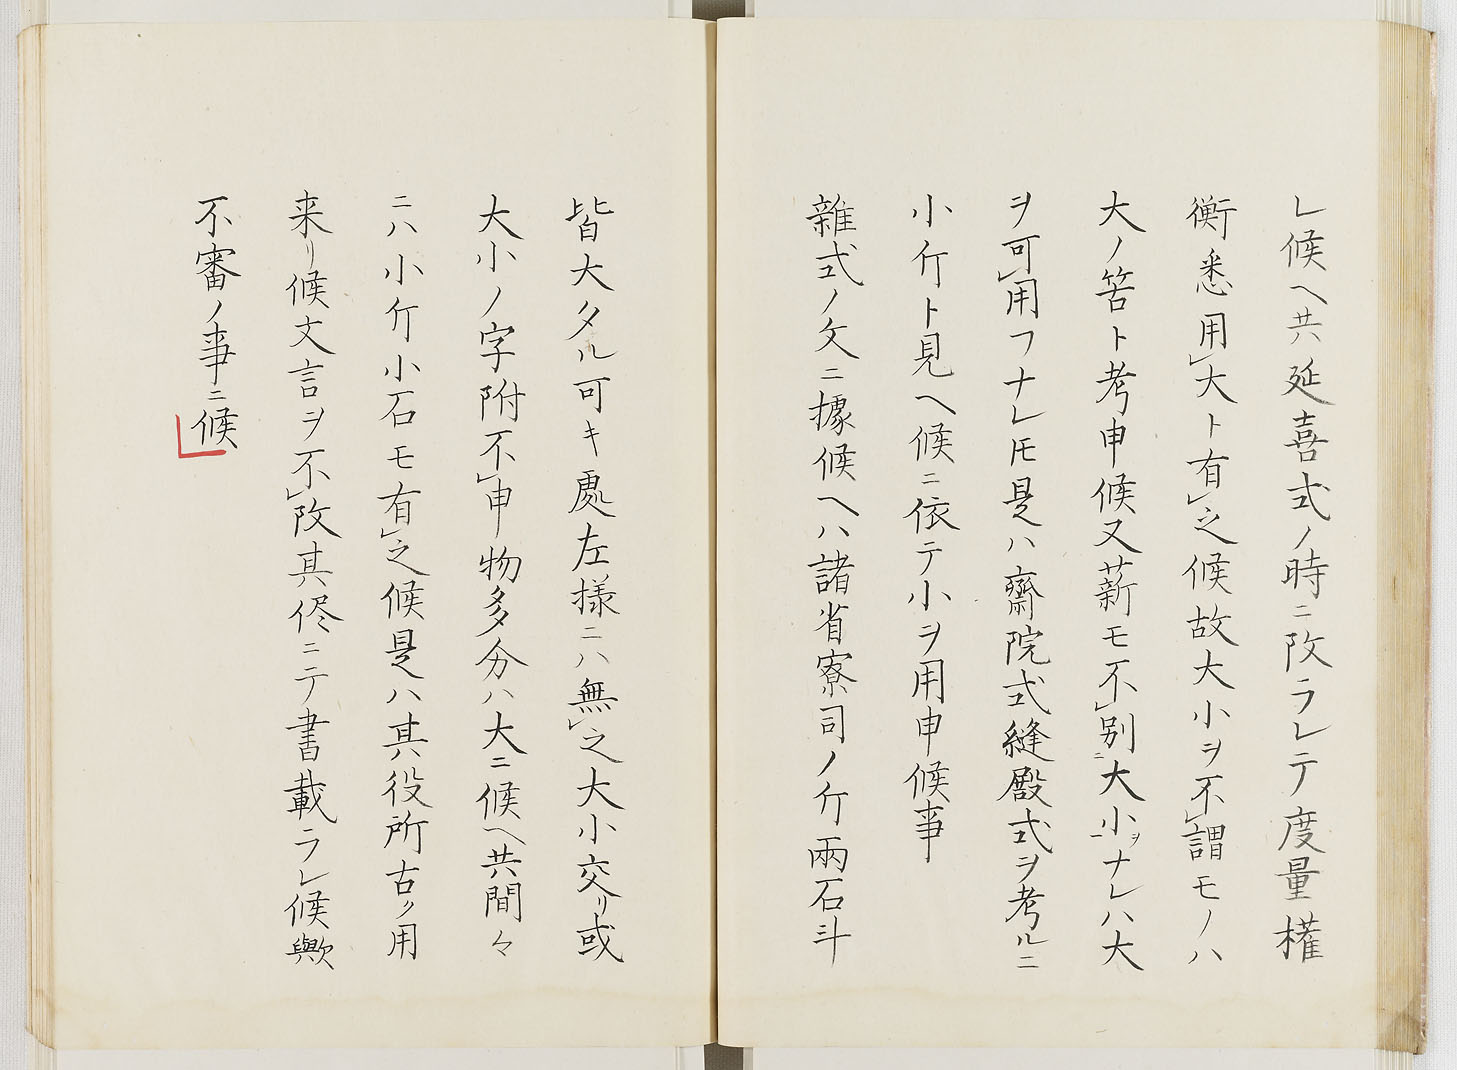 レ候ヘ共延喜式ノ時ニ改ラレテ度量權
衡悉用㆑大ト有㆑之候故大小ヲ不㆑謂モノハ
大ノ筈ト考申候又薪モ不㆑別ニ大小ヲ一ナレハ大
ヲ可㆑用フナレ𪜈是ハ齋院式縫殿式ヲ考ルニ
小斤ト見ヘ候ニ依テ小ヲ用申候事
雜式ノ文ニ據候ヘハ諸省寮司ノ斤兩石斗
皆大タル可キ處左樣ニハ無㆑之大小交リ或
大小ノ字附不㆑申物多分ハ大ニ候ヘ共間々
ニハ小斤小石モ有㆑之候是ハ其役所古ク用
来リ候文言ヲ不㆑改其侭ニテ書載ラレ候歟
不審ノ事ニ候